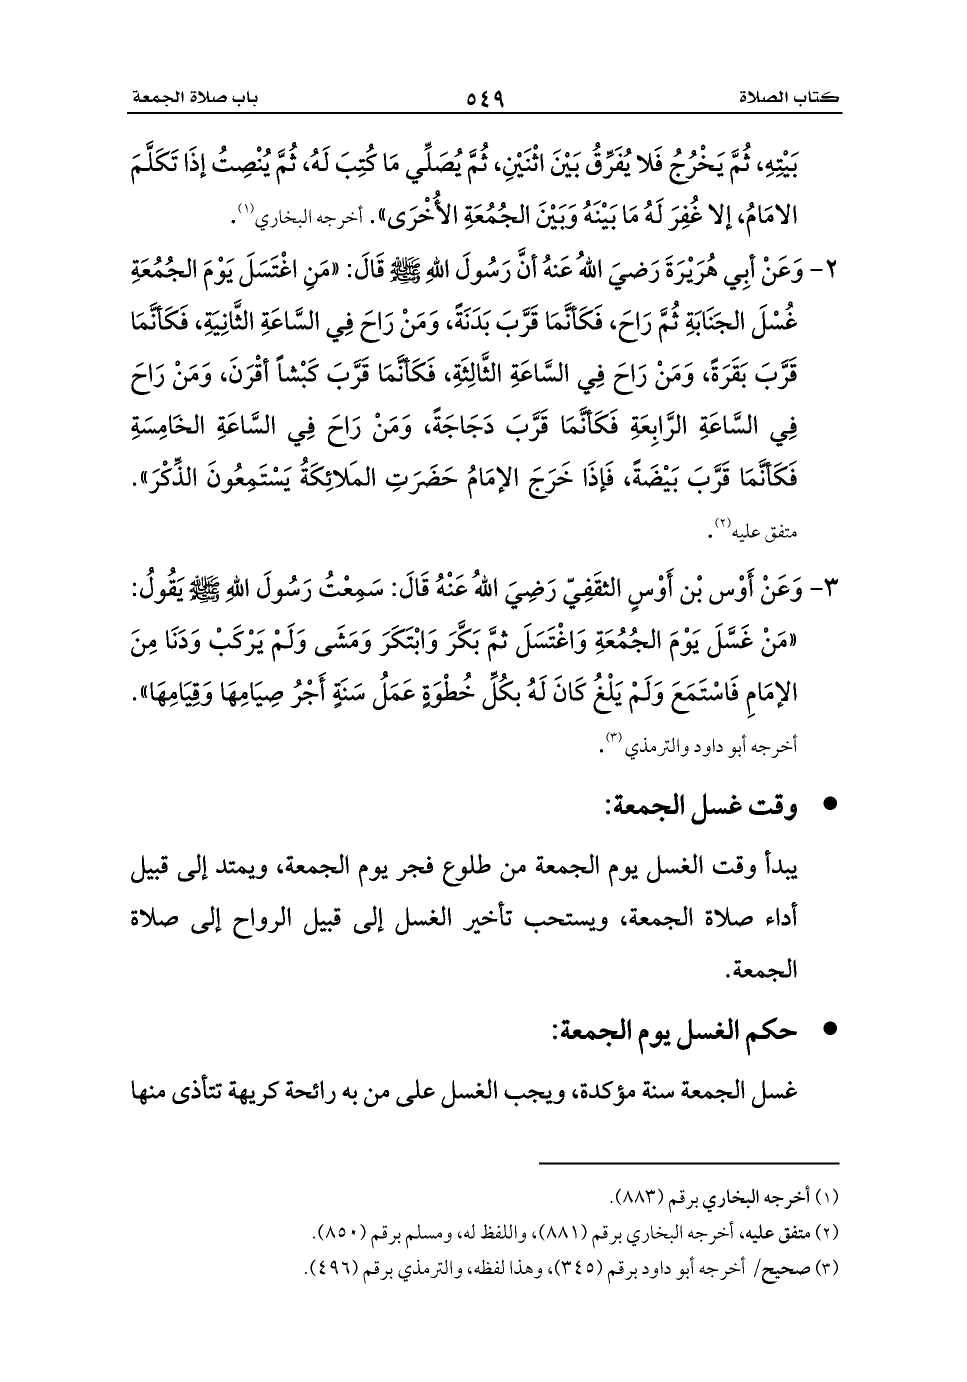 كتاب الصلاة ٥٤٩ باب صلاة الجمعة
بَيْتِهِ، ثُمَّ يَخْرُجُ فَلا يُفَرِّقُ بَيْنَ اثْنَيْنِ، ثُمَّ يُصَلِّي مَا كُتِبَ لَهُ، ثُمَّ يُنْصِتُ إذَا تَكَلَّمَ
الامَامُ، إلا غُفِرَ لَهُ مَا بَيْنَهُ وَبَيْنَ الجُمُعَةِ الأُخْرَى». أخرجه البخاري(١).
٢- وَعَنْ أبِي هُرَيْرَةَ رَضيَ اللهُ عَنهُ أنَّ رَسُولَ اللهِ ﷺ قَالَ: «مَنِ اغْتَسَلَ يَوْمَ الجُمُعَةِ
غُسْلَ الجَنَابَةِ ثُمَّ رَاحَ، فَكَأنَّمَا قَرَّبَ بَدَنَةً، وَمَنْ رَاحَ فِي السَّاعَةِ الثَّانِيَةِ، فَكَأنَّمَا
قَرَّبَ بَقَرَةً، وَمَنْ رَاحَ فِي السَّاعَةِ الثَّالِثَةِ، فَكَأنَّمَا قَرَّبَ كَبْشاً أقْرَنَ، وَمَنْ رَاحَ
فِي السَّاعَةِ الرَّابِعَةِ فَكَأنَّمَا قَرَّبَ دَجَاجَةً، وَمَنْ رَاحَ فِي السَّاعَةِ الخَامِسَةِ
فَكَأنَّمَا قَرَّبَ بَيْضَةً، فَإذَا خَرَجَ الإمَامُ حَضَرَتِ المَلائِكَةُ يَسْتَمِعُونَ الذِّكْرَ».
متفق عليه(٢).
٣- وَعَنْ أَوْس بْن أَوْسٍ الثقَفِيّ رَضِيَ اللهُ عَنْهُ قَالَ: سَمِعْتُ رَسُولَ اللهِ ﷺ يَقُولُ:
«مَنْ غَسَّلَ يَوْمَ الجُمُعَةِ وَاغْتَسَلَ ثمَّ بَكَّرَ وَابْتَكَرَ وَمَشَى وَلَمْ يَرْكَبْ وَدَنَا مِنَ
الإمَامِ فَاسْتَمَعَ وَلَمْ يَلْغُ كَانَ لَهُ بكُلِّ خُطْوَةٍ عَمَلُ سَنَةٍ أَجْرُ صِيَامِهَا وَقِيَامِهَا».
أخرجه أبو داود والترمذي(٣).
● وقت غسل الجمعة:
يبدأ وقت الغسل يوم الجمعة من طلوع فجر يوم الجمعة، ويمتد إلى قبيل
أداء صلاة الجمعة، ويستحب تأخير الغسل إلى قبيل الرواح إلى صلاة
الجمعة.
● حكم الغسل يوم الجمعة:
غسل الجمعة سنة مؤكدة، ويجب الغسل على من به رائحة كريهة تتأذى منها
(١) أخرجه البخاري برقم (٨٨٣).
(٢) متفق عليه، أخرجه البخاري برقم (٨٨١)، واللفظ له، ومسلم برقم (٨٥٠).
(٣) صحيح/ أخرجه أبو داود برقم (٣٤٥)، وهذا لفظه، والترمذي برقم (٤٩٦).